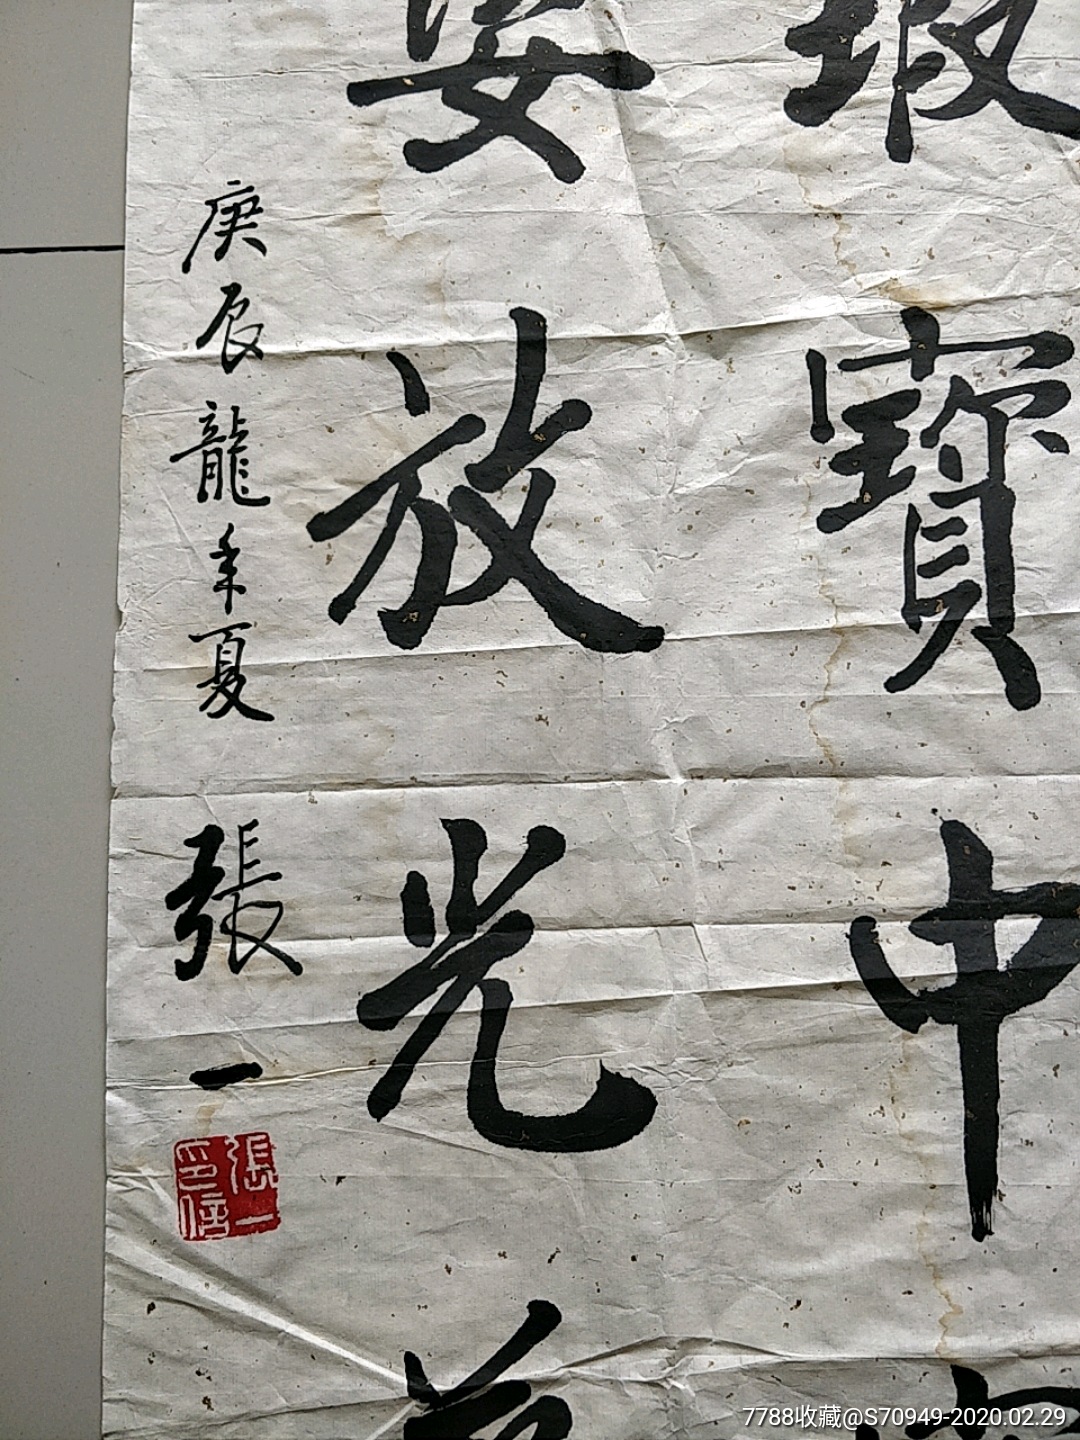 瑕寶中
姿放光
庚辰龍年夏
張一
張一
印信
7788收藏@S70949-2020.02.29